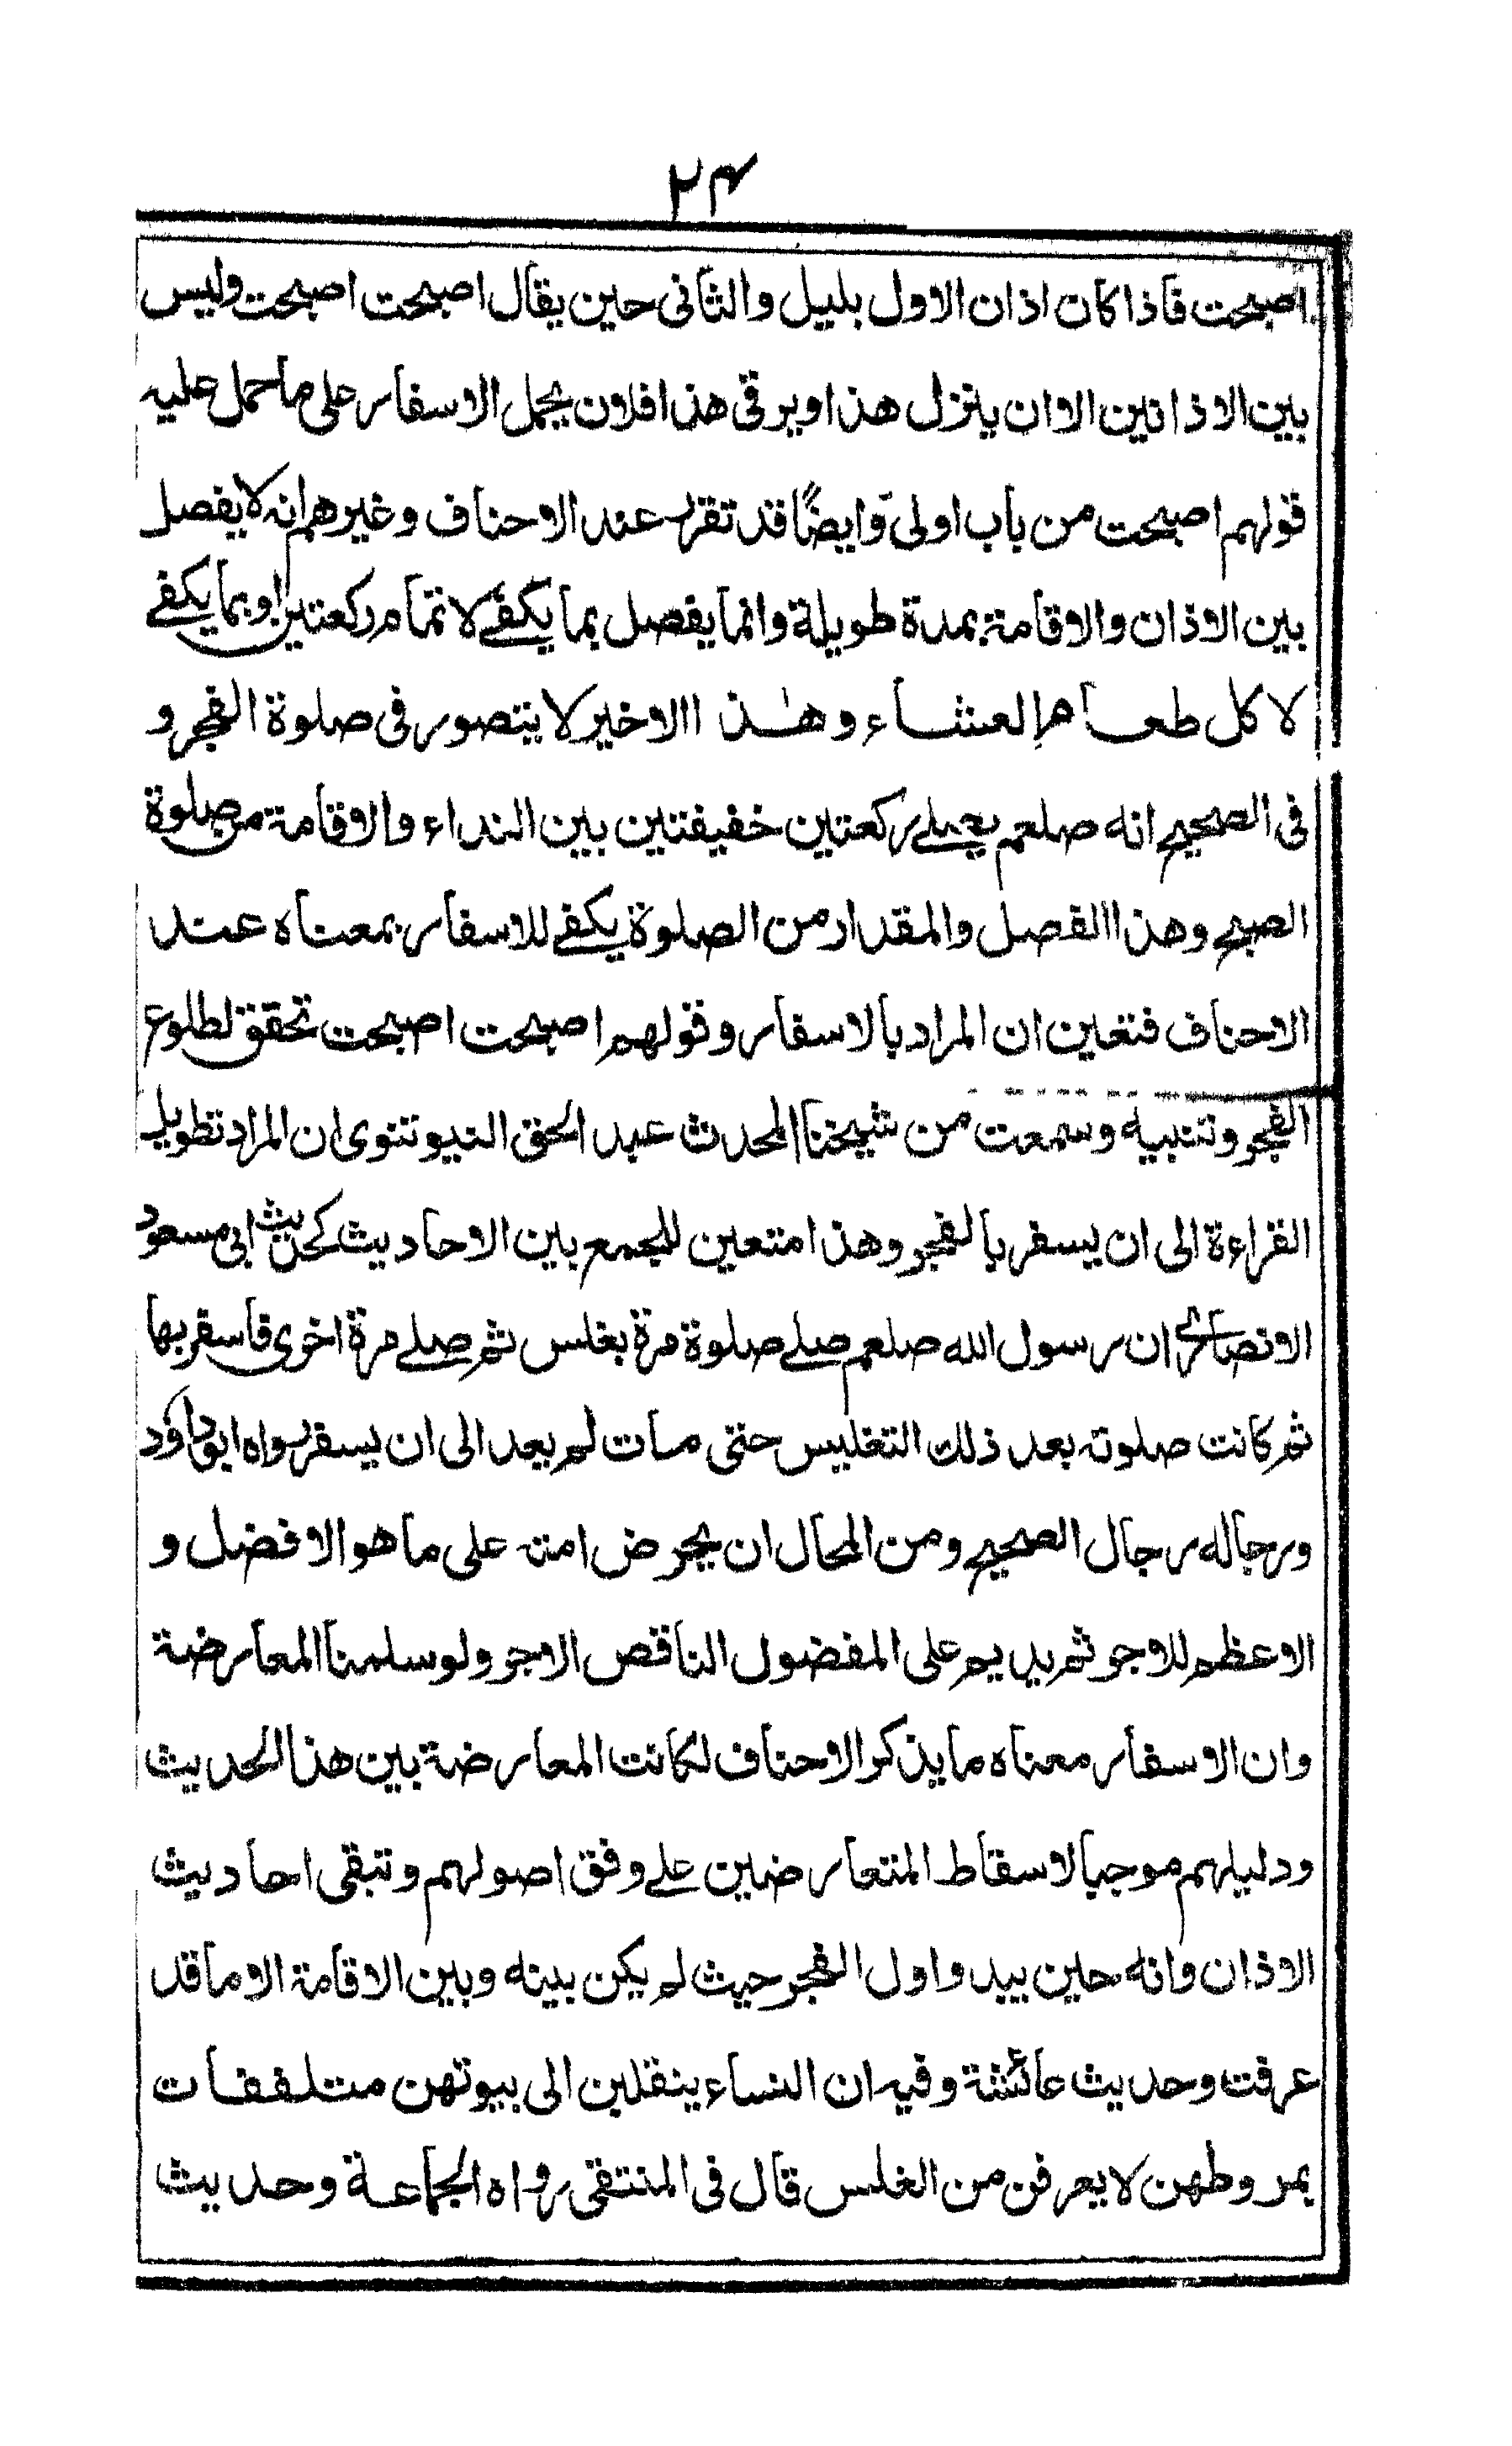 ٢٤
اصبحت فاذا كان اذان الاول بليل والثانى حين يقال اصبحت اصبحت وليس
بين الاذانين الا ان ينزل هذا ويرقى هذا فلان يحمل الاسفار على ما حمل عليه
قولهم اصبحت من باب اولى وايضًا قد تقرر عند الاحناف وغيرهم انه لا يفصل
بين الاذان والاقامة بمدة طويلة وانما يفصل بما يكفے لاتمام ركعتين او بما يكفے
لاكل طعام العشاء وهٰذا الاخير لا يتصور فى صلوة الفجر و
فى الصحيح انه صلعم يصلے ركعتين خفيفتين بين النداء والاقامة من صلوة
الصبح وهذا الفصل والمقدار من الصلوة يكفے للاسفار بمعناه عند
الاحناف فتعين ان المراد بالاسفار وقولهم اصبحت اصبحت تحقق لطلوع
الفجر وتنبيه وسمعت من شيخنا المحدث عبد الحق النيوتنوى ان المراد تطويل
القراءة الى ان يسفر بالفجر وهذا متعين للجمع بين الاحاديث كحديث ابى مسعود
الانصارى ان رسول الله صلعم صلے صلوة مرة بغلس ثم صلے مرة اخرى فاسفر بها
ثم كانت صلوته بعد ذلك التغليس حتى مات لم يعد الى ان يسفر رواه ابوداؤد
ورجاله رجال الصحيح ومن المحال ان يحرض امته على ما هو الافضل و
الاعظم للاجر ثم يديم على المفضول الناقص الاجر ولو سلمنا المعارضة
وان الاسفار معناه ما يذكر الاحناف لكانت المعارضة بين هذا الحديث
ودليلهم موجبا لاسقاط المتعارضين علے وفق اصولهم وتبقى احاديث
الاذان وانه حين يبدو اول الفجر حيث لم يكن بينه وبين الاقامة الا ما قد
عرفت وحديث عائشة وفيه ان النساء ينقلبن الى بيوتهن متلففات
بمروطهن لا يعرفن من الغلس قال فى المنتقى رواه الجماعة وحديث